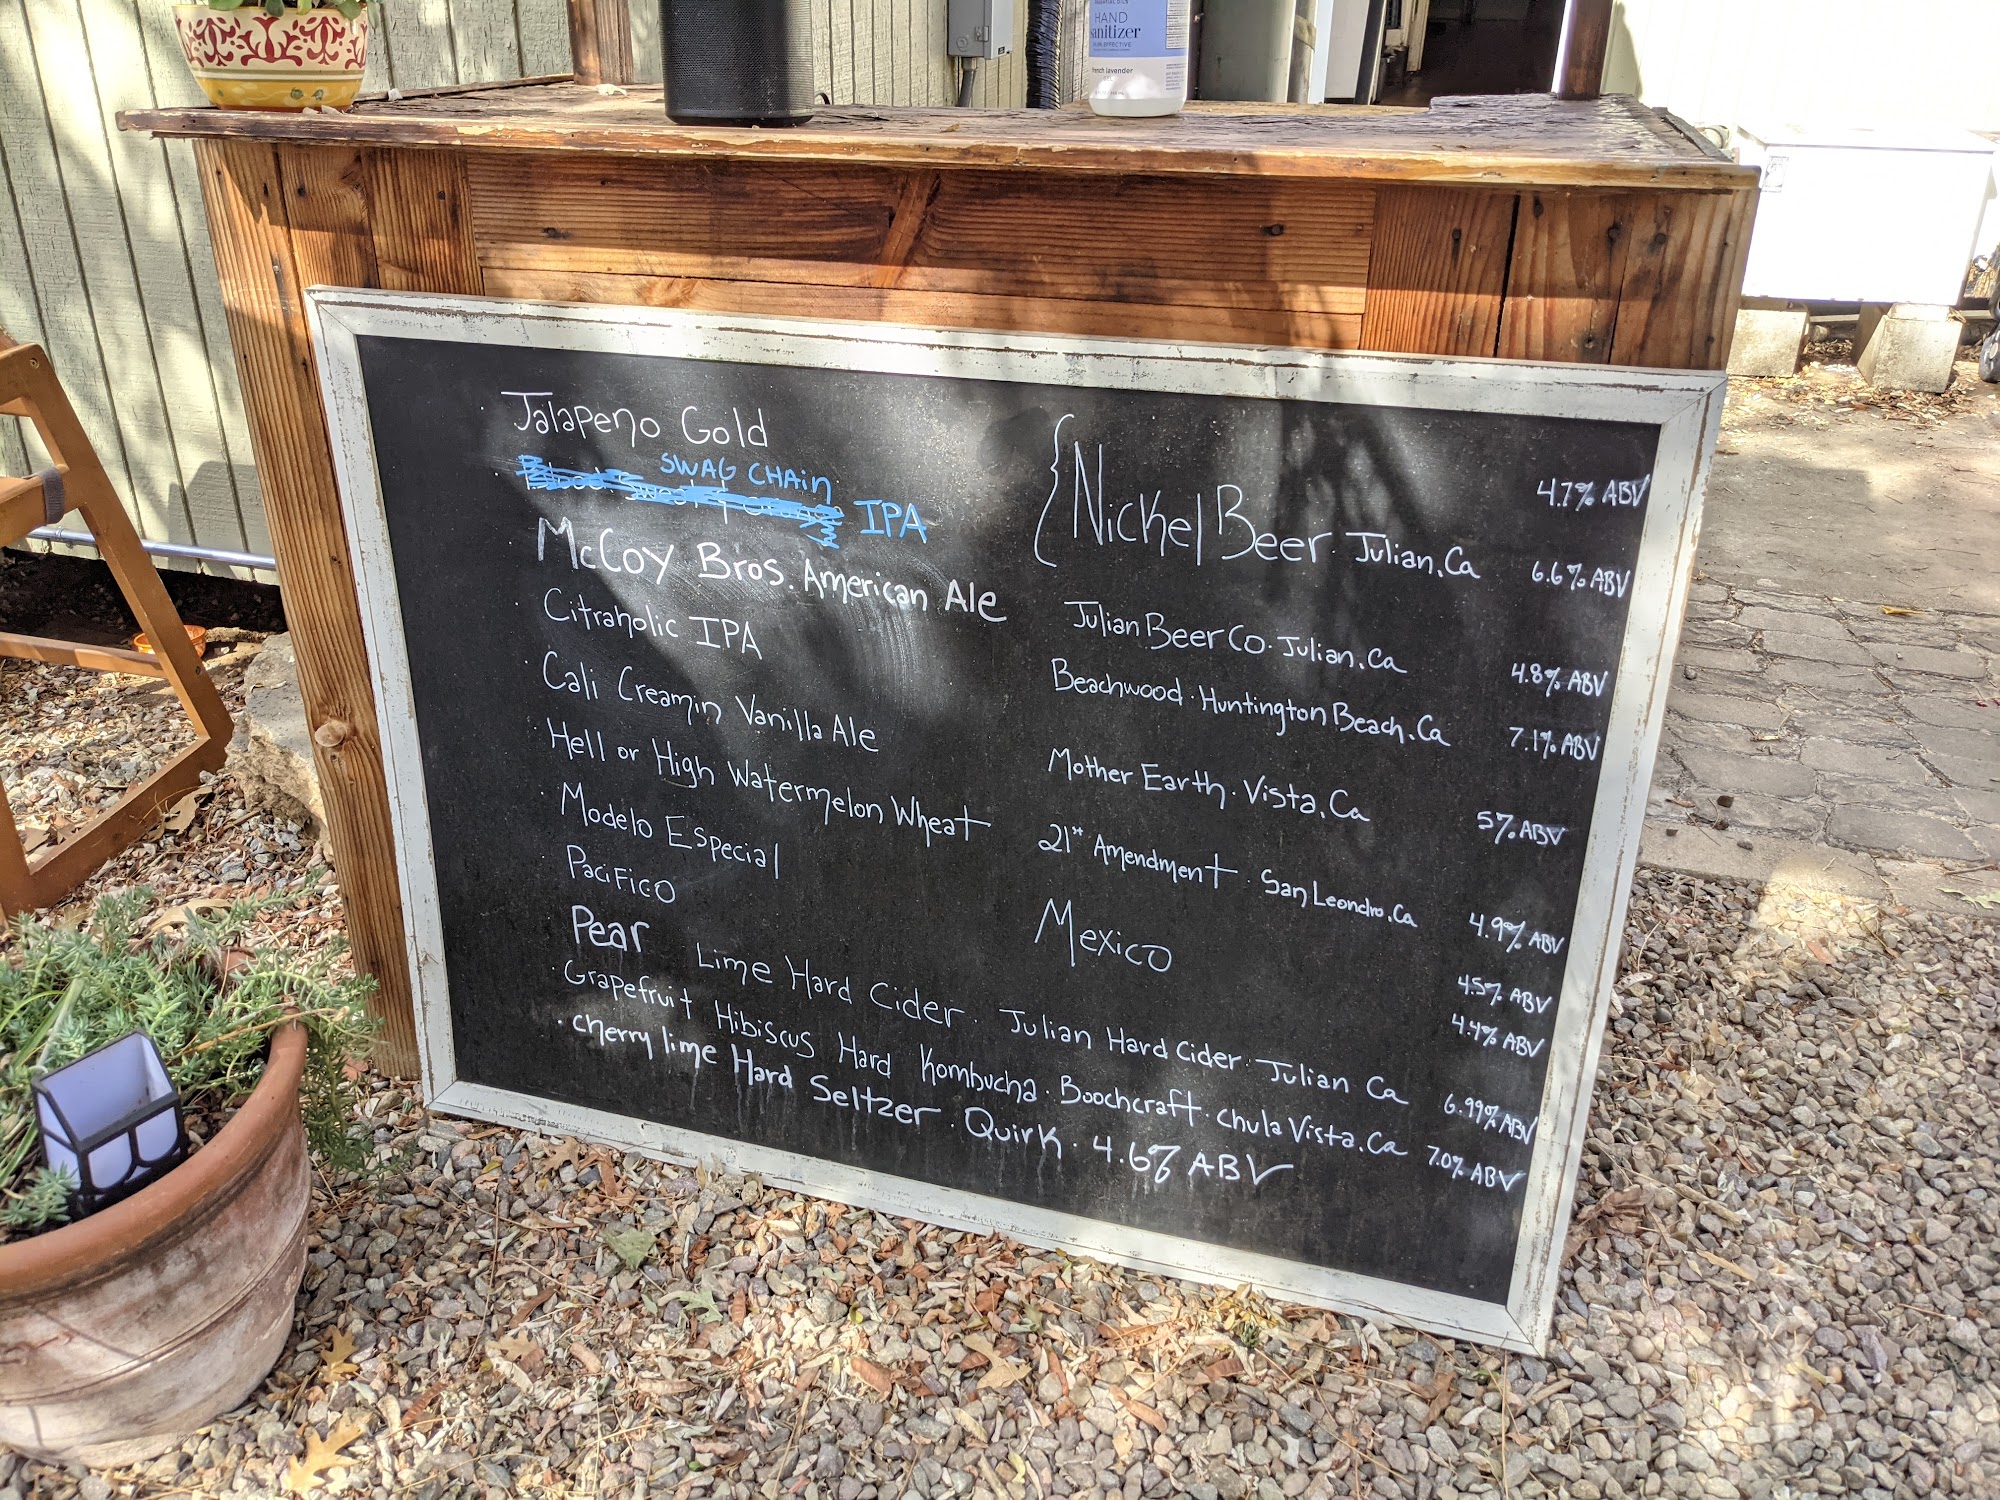 HAND
sanitizer
french lavender
· Jalapeno Gold { Nickel Beer · Julian, Ca 4.7% ABV
· SWAG CHAIN IPA 6.6% ABV
· McCoy Bros. American Ale Julian Beer Co. Julian, Ca 4.8% ABV
· Citraholic IPA Beachwood · Huntington Beach, Ca 7.1% ABV
· Cali Creamin Vanilla Ale Mother Earth · Vista, Ca 5% ABV
· Hell or High Watermelon Wheat 21st Amendment · San Leondro, Ca 4.9% ABV
· Modelo Especial Mexico 4.5% ABV
Pacifico 4.4% ABV
Pear Lime Hard Cider · Julian Hard Cider · Julian Ca 6.99% ABV
· Grapefruit Hibiscus Hard Kombucha · Boochcraft · Chula Vista, Ca 7.0% ABV
· cherry lime Hard Seltzer · Quirk · 4.6% ABV